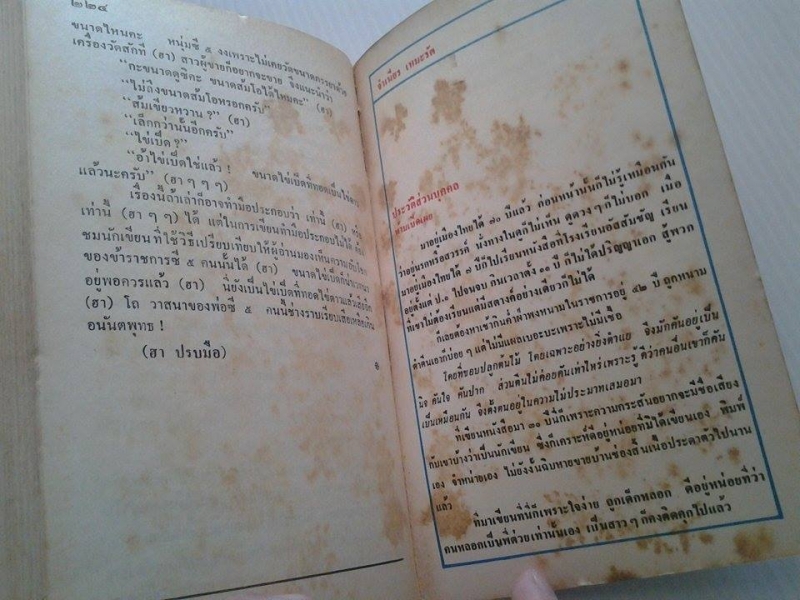 ๒๒๔
ขนาดไหนคะ หนุ่มซี ๕ งงเพราะไม่เคยวัดขนาดภรรยาด้วย
เครื่องวัดสักที (ฮา) สาวผู้ขายก็อยากจะขาย จึงแนะนำว่า
“กะขนาดดูซิคะ ขนาดส้มโอได้ไหมคะ” (ฮา)
“ไม่ถึงขนาดส้มโอหรอกครับ”
“ส้มเขียวหวาน ?” (ฮา)
“เล็กกว่านั้นอีกครับ”
“ไข่เป็ด ?”
“อ้าไข่เป็ดใช่แล้ว ! ขนาดไข่เป็ดที่ทอดเป็นไข่ดาว
แล้วนะครับ” (ฮา ๆ ๆ ๆ)
เรื่องนี้ถ้าเล่าก็อาจทำมือประกอบว่า เท่านี้ (ฮา)
เท่านี้ (ฮา ๆ ๆ) ได้ แต่ในการเขียนทำมือประกอบไม่ได้
ชมนักเขียนที่ใช้วิธีเปรียบเทียบให้ผู้อ่านมองเห็นความ
ของข้าราชการซี ๕ คนนั้นได้ (ฮา) ขนาดไข่เป็ดก็น่า
อยู่พอควรแล้ว (ฮา) นี่ยังเป็นไข่เป็ดที่ทอดใช้ดาวแล้วเสีย
(ฮา) โถ วาสนาของพ่อซี ๕ คนนี้ช่างราบเรียบเสีย
อนันตพุทธ !
(ฮา ปรบมือ)
จำเนียร
ประวัติส่วนบุคคล
มาอยู่เมืองไทยได้ ๗๐ ปีแล้ว ก่อนหน้านั้นก็ไม่รู้เหมือนกัน
ว่าอยู่นรกหรือสวรรค์ นั่งทางในดูก็ไม่เห็น ดูดวง ๆ ก็ไม่บอก เมื่อ
มาอยู่เมืองไทยได้ ๗ ปีก็ไปเรียนหนังสือที่โรงเรียนอัสสัมชัญ เรียน
อยู่ตั้งแต่ ป.๑ ไปจนจบ กินเวลาตั้ง ๑๑ ปี ก็ไม่ได้ปริญญาเอก ผู้พวก
ที่เขาไม่ต้องเรียนแต่มีสตางค์อย่างเดียวก็ไม่ได้
ก็เลยต้องหาเช้ากินค่ำตำพงหนามในราชการอยู่ ๔๒ ปี ถูกหนาม
ตำตีนเอาก็บ่อย ๆ แต่ไม่มีแผลเบอะบะเพราะไม่มีเชื้อ
โดยที่ชอบปลูกต้นไม้ โดยเฉพาะอย่างยิ่งตำแย จึงมักคันอยู่เป็น
นิจ คันใจ คันปาก ส่วนตีนไม่ค่อยคันเท่าไหร่เพราะรู้ ดีว่าคนอื่นเขาก็คัน
เป็นเหมือนกัน จึงตั้งตนอยู่ในความไม่ประมาทเสมอมา
ที่เขียนหนังสือมา ๓๐ ปีนี่ก็เพราะความกระสันอยากจะมีชื่อเสียง
กับเขาบ้างว่าเป็นนักเขียน ซึ่งก็เคราะห์ดีอยู่หน่อยที่มิได้เขียนเอง พิมพ์
เอง จำหน่ายเอง ไม่ยังงั้นฉิบหายขายบ้านช่องสิ้นเนื้อประดาตัวไปนาน
แล้ว
ที่มาเขียนที่นี่ก็เพราะใจง่าย ถูกเด็กหลอก ดีอยู่หน่อยที่ว่า
คนหลอกเป็นพี่ด้วยเท่านั้นเอง เป็นสาว ๆ ก็คงติดคุกไปแล้ว